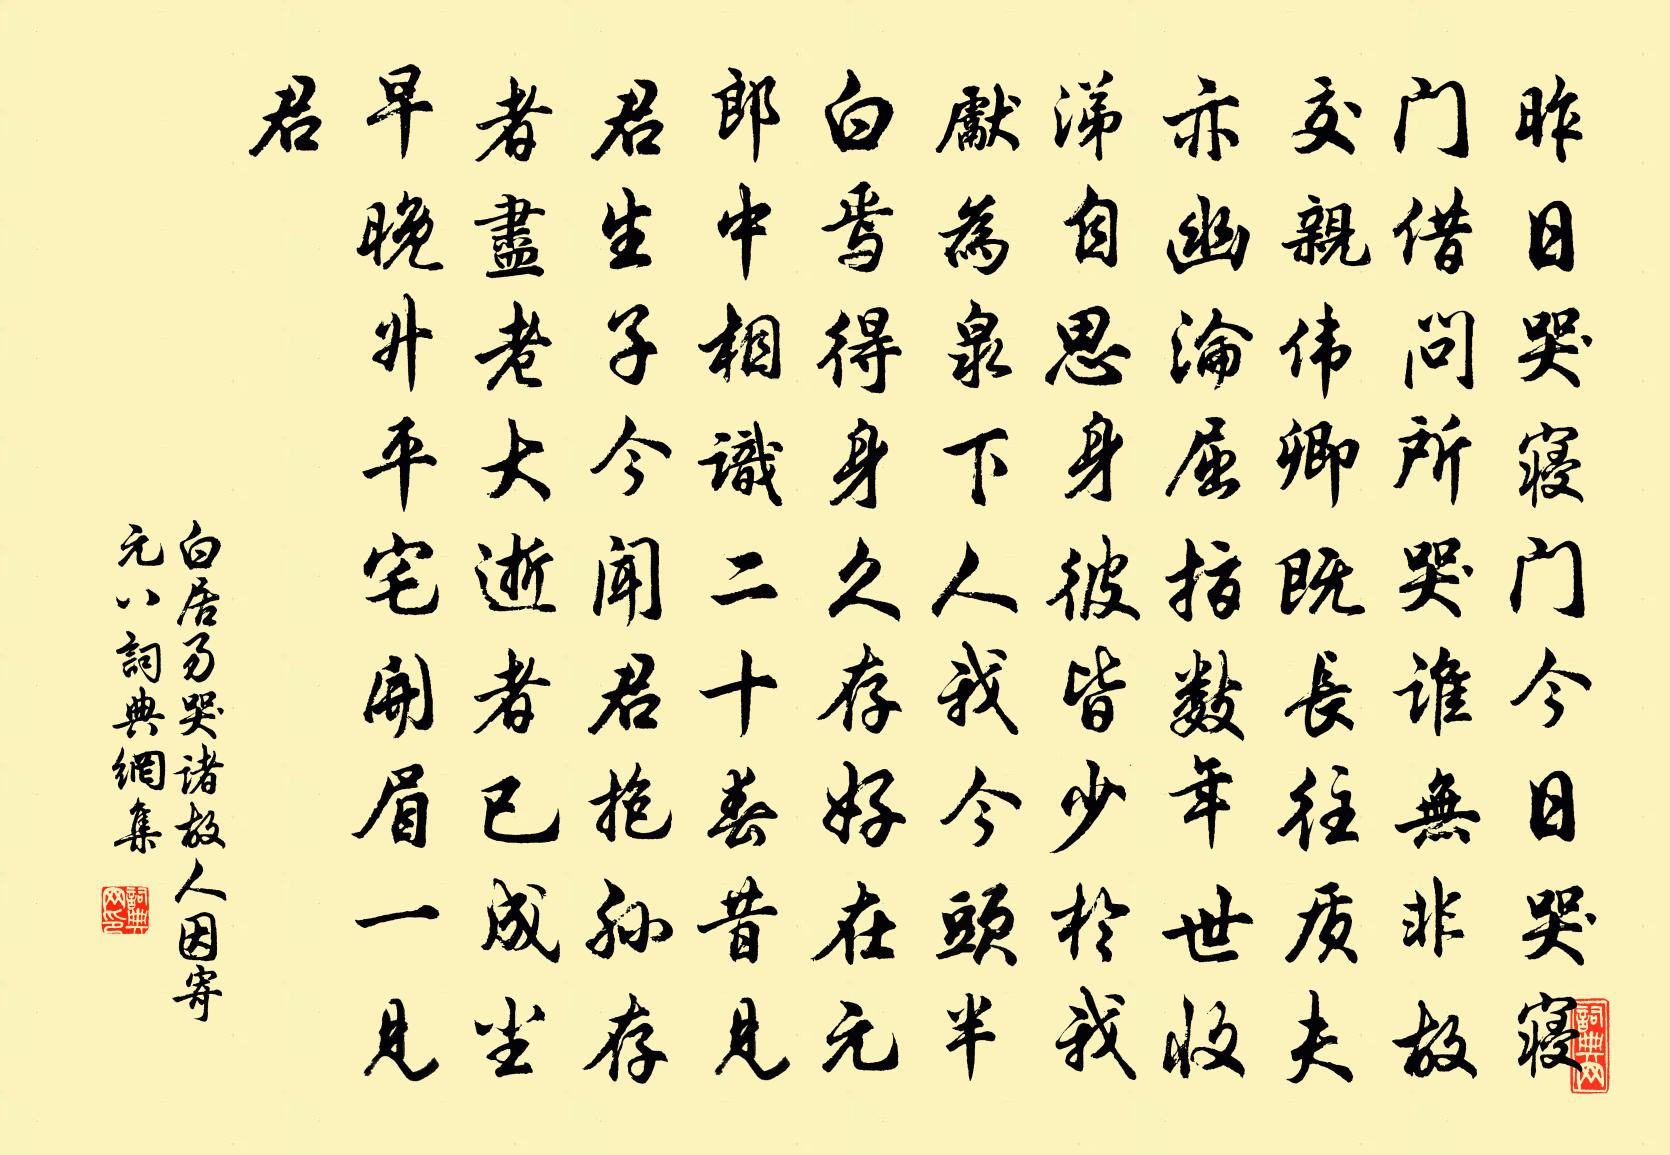 昨日哭寝门今日哭寝
门借问所哭谁無非故
交親伟卿既長往质夫
亦幽淪屈指数年世收
涕自思身彼皆少於我
獻為泉下人我今頭半
白焉得身久存好在元
郎中相識二十春昔見
君生子今闻君抱孙存
者盡老大逝者已成尘
早晚升平宅開眉一見
君
白居易哭诸故人因寄
元八詞典網集
詞典网印
詞典网